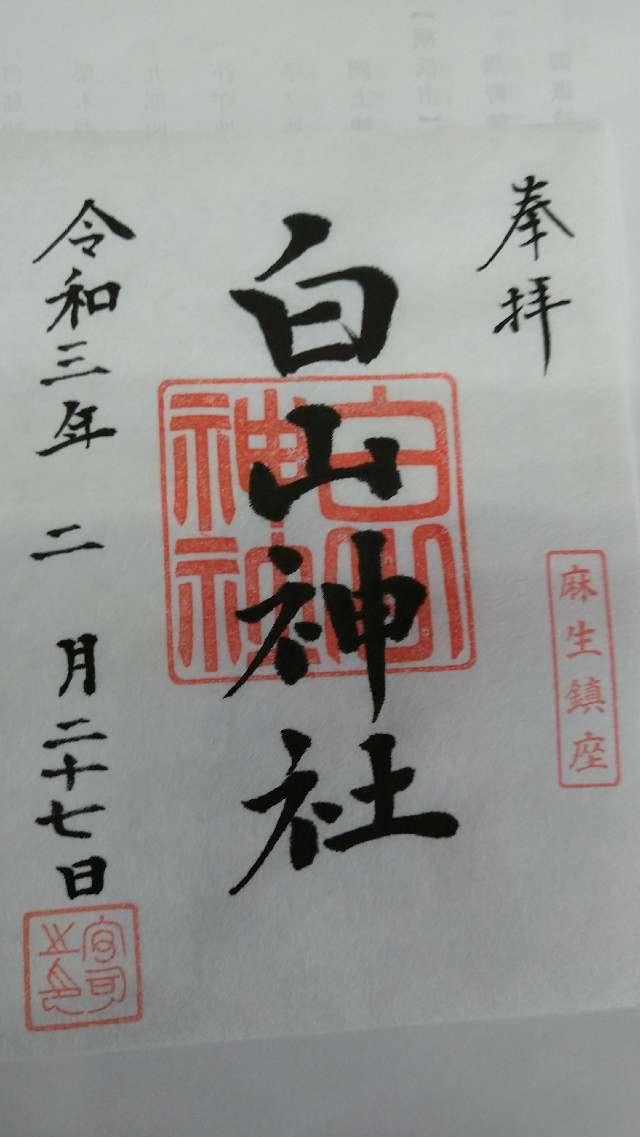 奉拝
麻生鎮座
白山神社
白山神社
令和三年二月二十七日
宮司之印